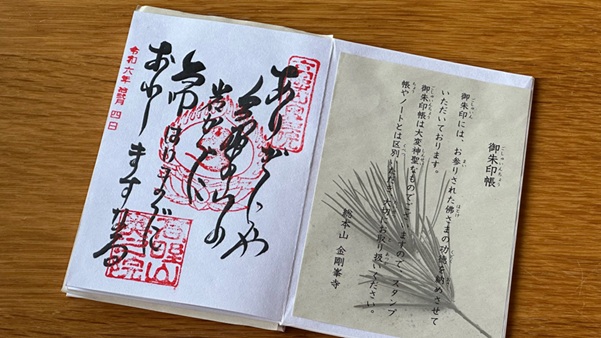 御朱印帳
御朱印には、お参りされた佛さまの功徳を納めさせて
いただいております。
御朱印帳は大変神聖なものでございますので、スタンプ
帳やノートとは区別いただき、大切にお取り扱いください。
総本山 金剛峯寺
ありがたや
高野の山の
岩かげに
大師はいまだに
おわしますなる
令和六年 月 四日
高野山
奥之院